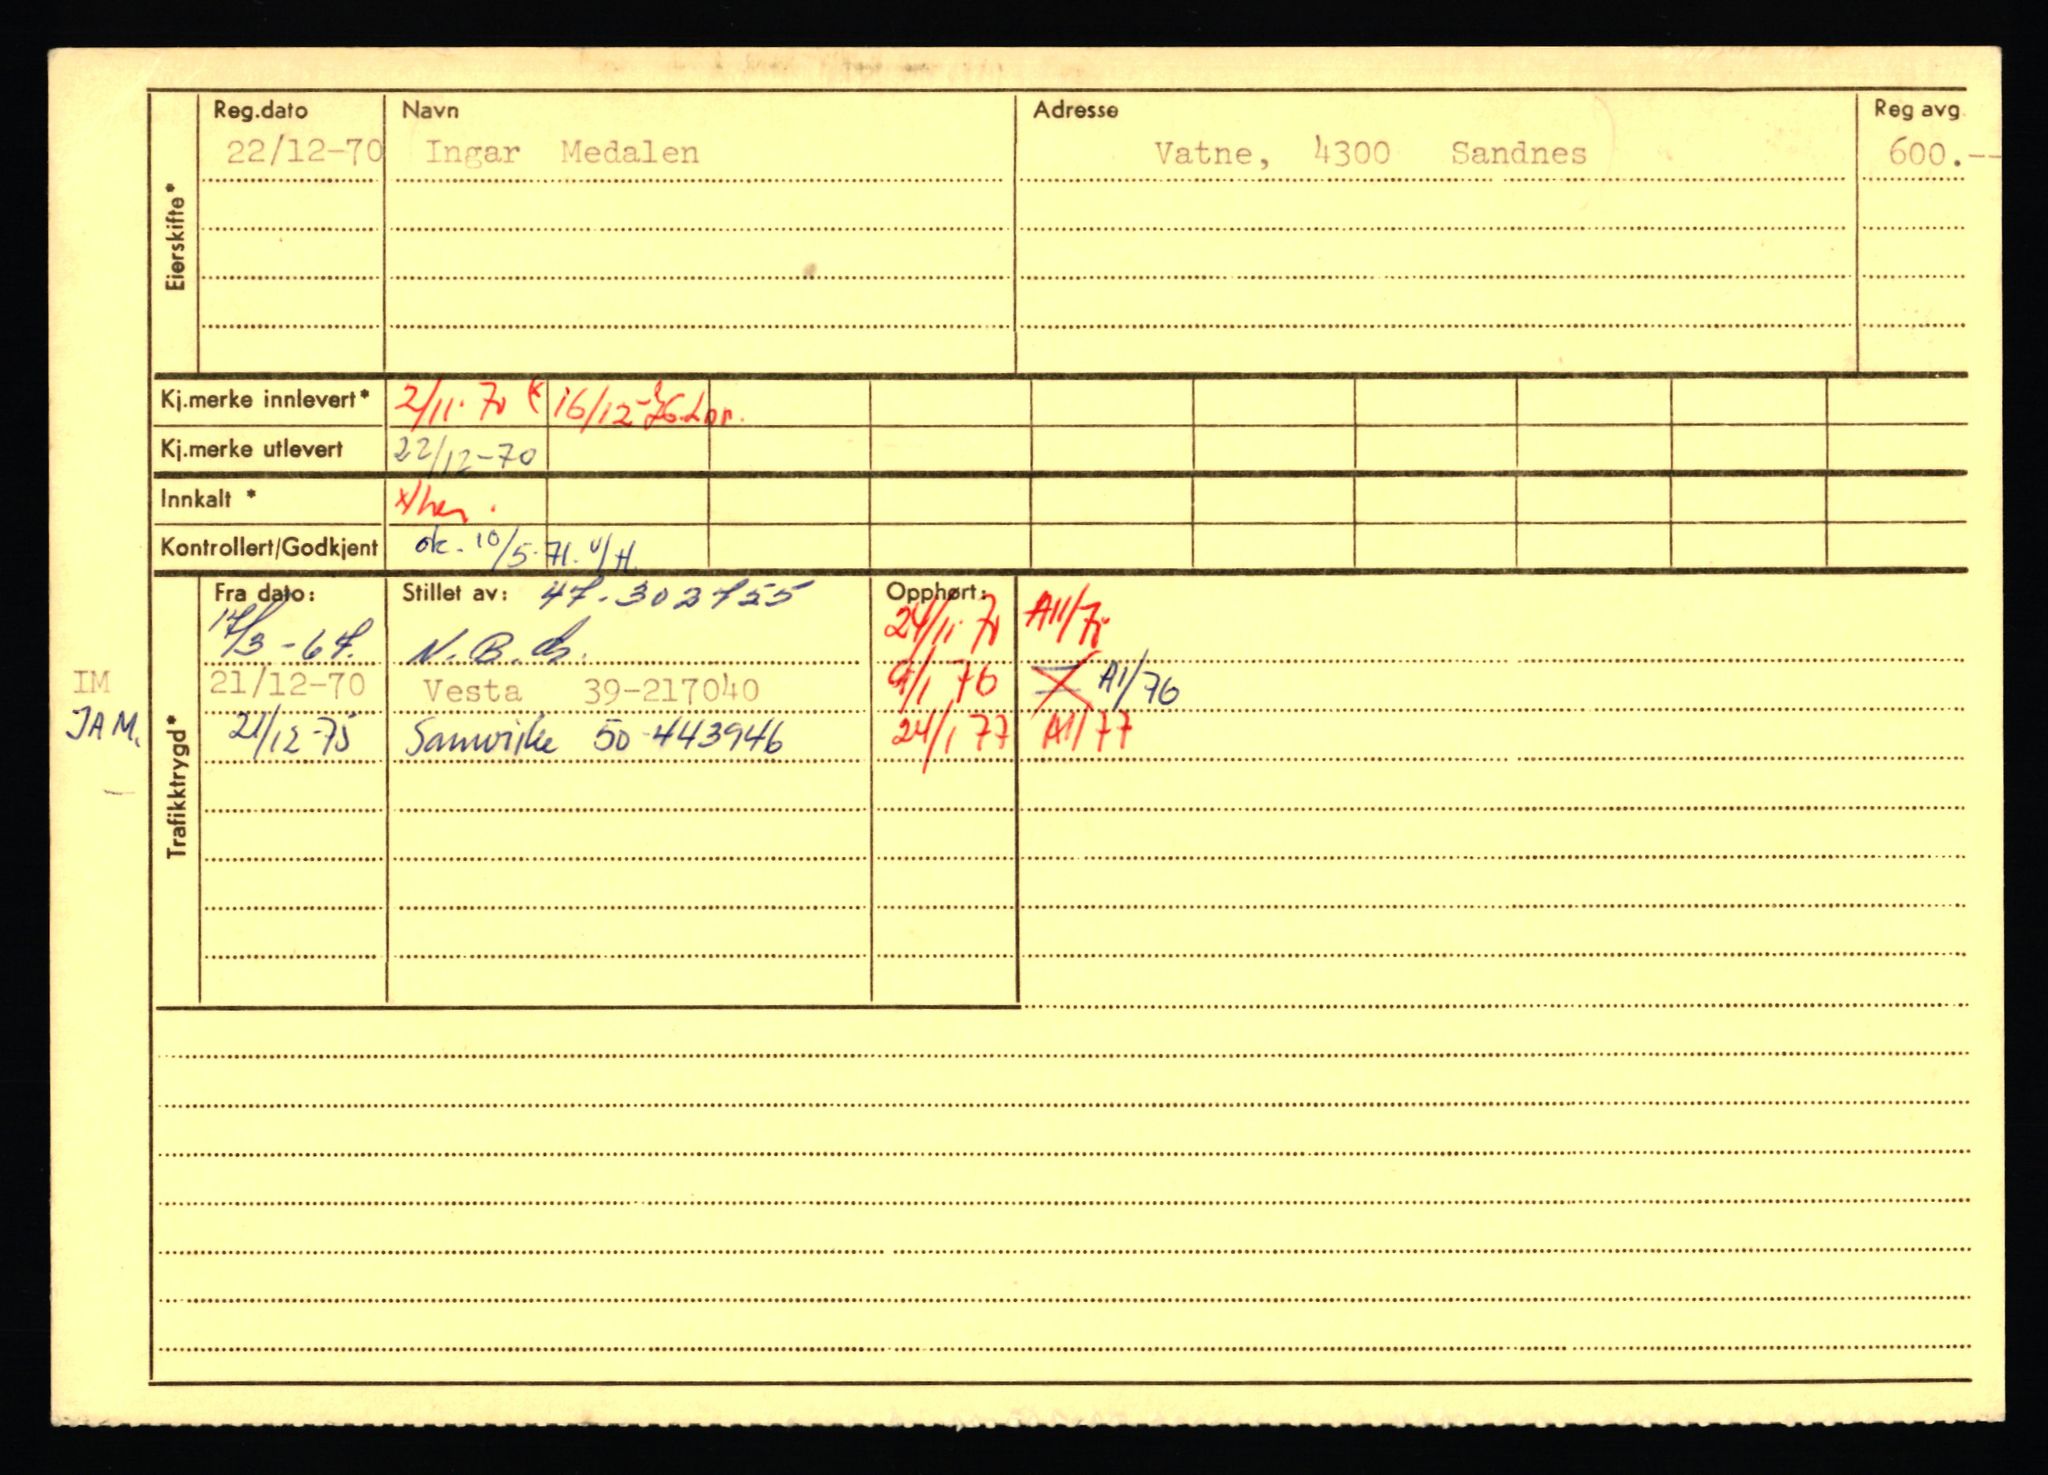 Reg.dato Navn Adresse Reg avg.
22/12-70 Ingar Medalen Vatne, 4300 Sandnes 600.--
Eierskifte*
Kj.merke innlevert* 2/11-70 16/12-76
Kj.merke utlevert 22/12-70
Innkalt *
Kontrollert/Godkjent ok. 10/5-71.
Fra dato: Stillet av: 47-302755 Opphørt:
17/3-67. N.B. 24/11-70 A11/70
IM 21/12-70 Vesta 39-217040 9/1 76 A1/76
JAM. 21/12-75 Samvirke 50-443946 24/1 77 A1/77
Trafikktrygd*